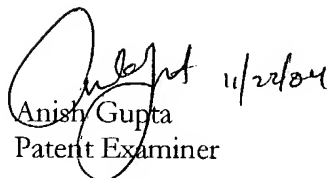 11/22/04
Anish Gupta
Patent Examiner